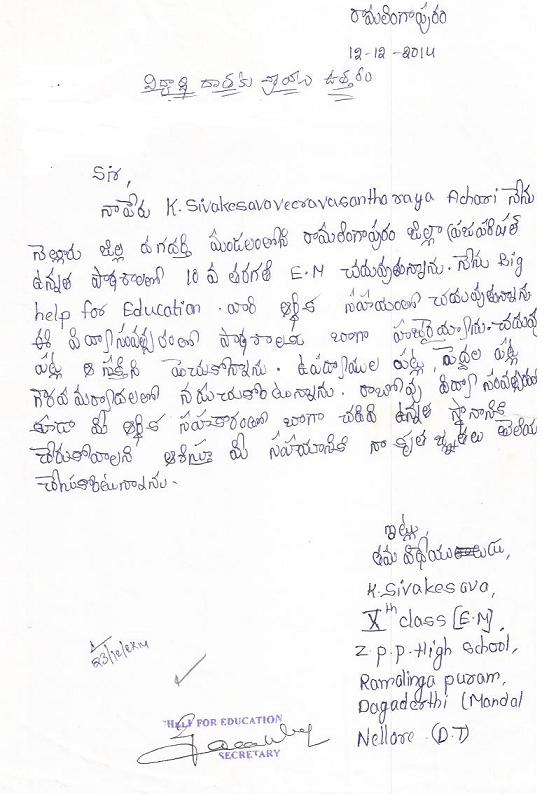 రామలింగాపురం
12-12-2014
విద్యార్థి దాతకు వ్రాయు ఉత్తరం
Sir,
నాపేరు K. Sivakesavaveeravasantharaya Achari నేను
నెల్లూరు జిల్లా దగదర్తి మండలంలోని రామలింగాపురం జిల్లా ప్రజాపరిషత్
ఉన్నత పాఠశాలలో 10 వ తరగతి E.M చదువుతున్నాను. నేను Big
help for Education. వారి ఆర్థిక సహాయంతో చదువుతున్నాను
ఈ విద్యాసంవత్సరంలో పాఠశాలకు బాగా హాజరైయ్యాను. చదువు
పట్ల ఆసక్తిని పెంచుకొన్నాను. ఉపాధ్యాయుల పట్ల, పెద్దల పట్ల
గౌరవ మర్యాదలతో నడుచుకొంటున్నాను. రాబోవు విద్యా సంవత్సరం
కూడా మీ ఆర్థిక సహకారంతో బాగా చదివి ఉన్నత స్థానానికి
చేరుకోవాలని ఆశిస్తూ మీ సహాయానికి నా కృతజ్ఞతలు తెలియ
చేసుకొంటున్నాను.
ఇట్లు,
తమ
K. Sivakesava,
Xth class [E.M],
Z.P.P. High school,
Ramalinga puram,
Dagaderthi (Mandal
Nellore (D.T)
HELP FOR EDUCATION
SECRETARY